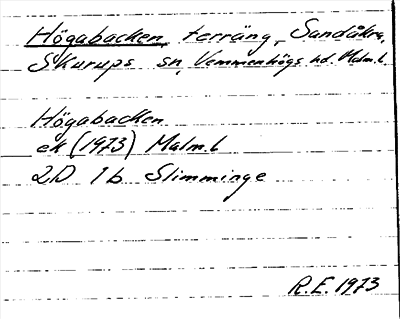 Högabacken, terräng, Sandåkra,
Skurups sn, Vemmenhögs hd. Malm.l.
Högabacken
ek (1973) Malm.l
2D 1b Slimminge
R.E. 1973